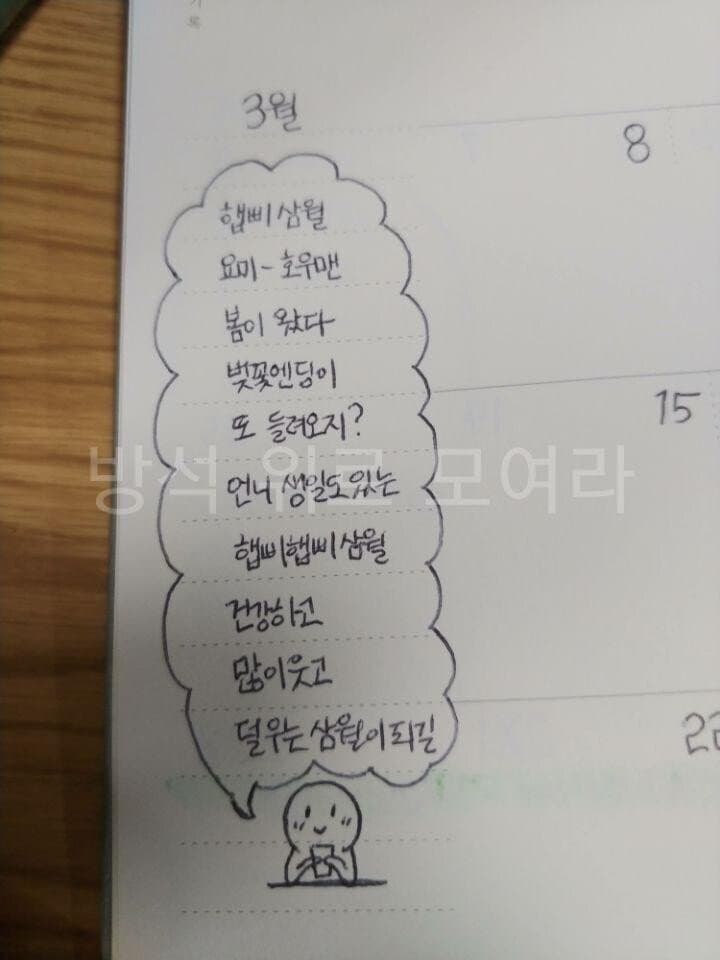 기
록
3월
8
햅삐 삼월
요미~ 호우맨
봄이 왔다
벚꽃엔딩이
또 들려오지?
15
방석 위로 모여라
언니 생일도 있는
햅삐햅삐 삼월
건강하고
많이 웃고
덜 우는 삼월이 되길